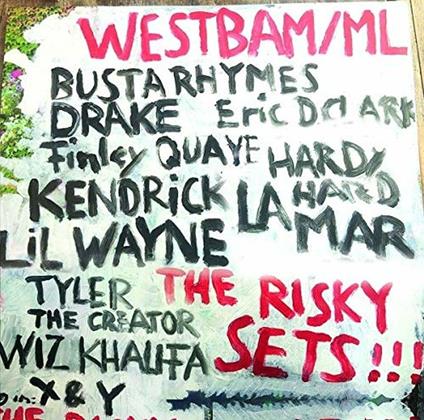 WESTBAM/ML
BUSTA RHYMES
DRAKE Eric D.CLARK
Finley QUAYE HARDY
HARD
KENDRICK LAMAR
LiL WAYNE
TYLER THE CREATOR
THE RISKY SETS!!!
WIZ KHALIFA
X & Y